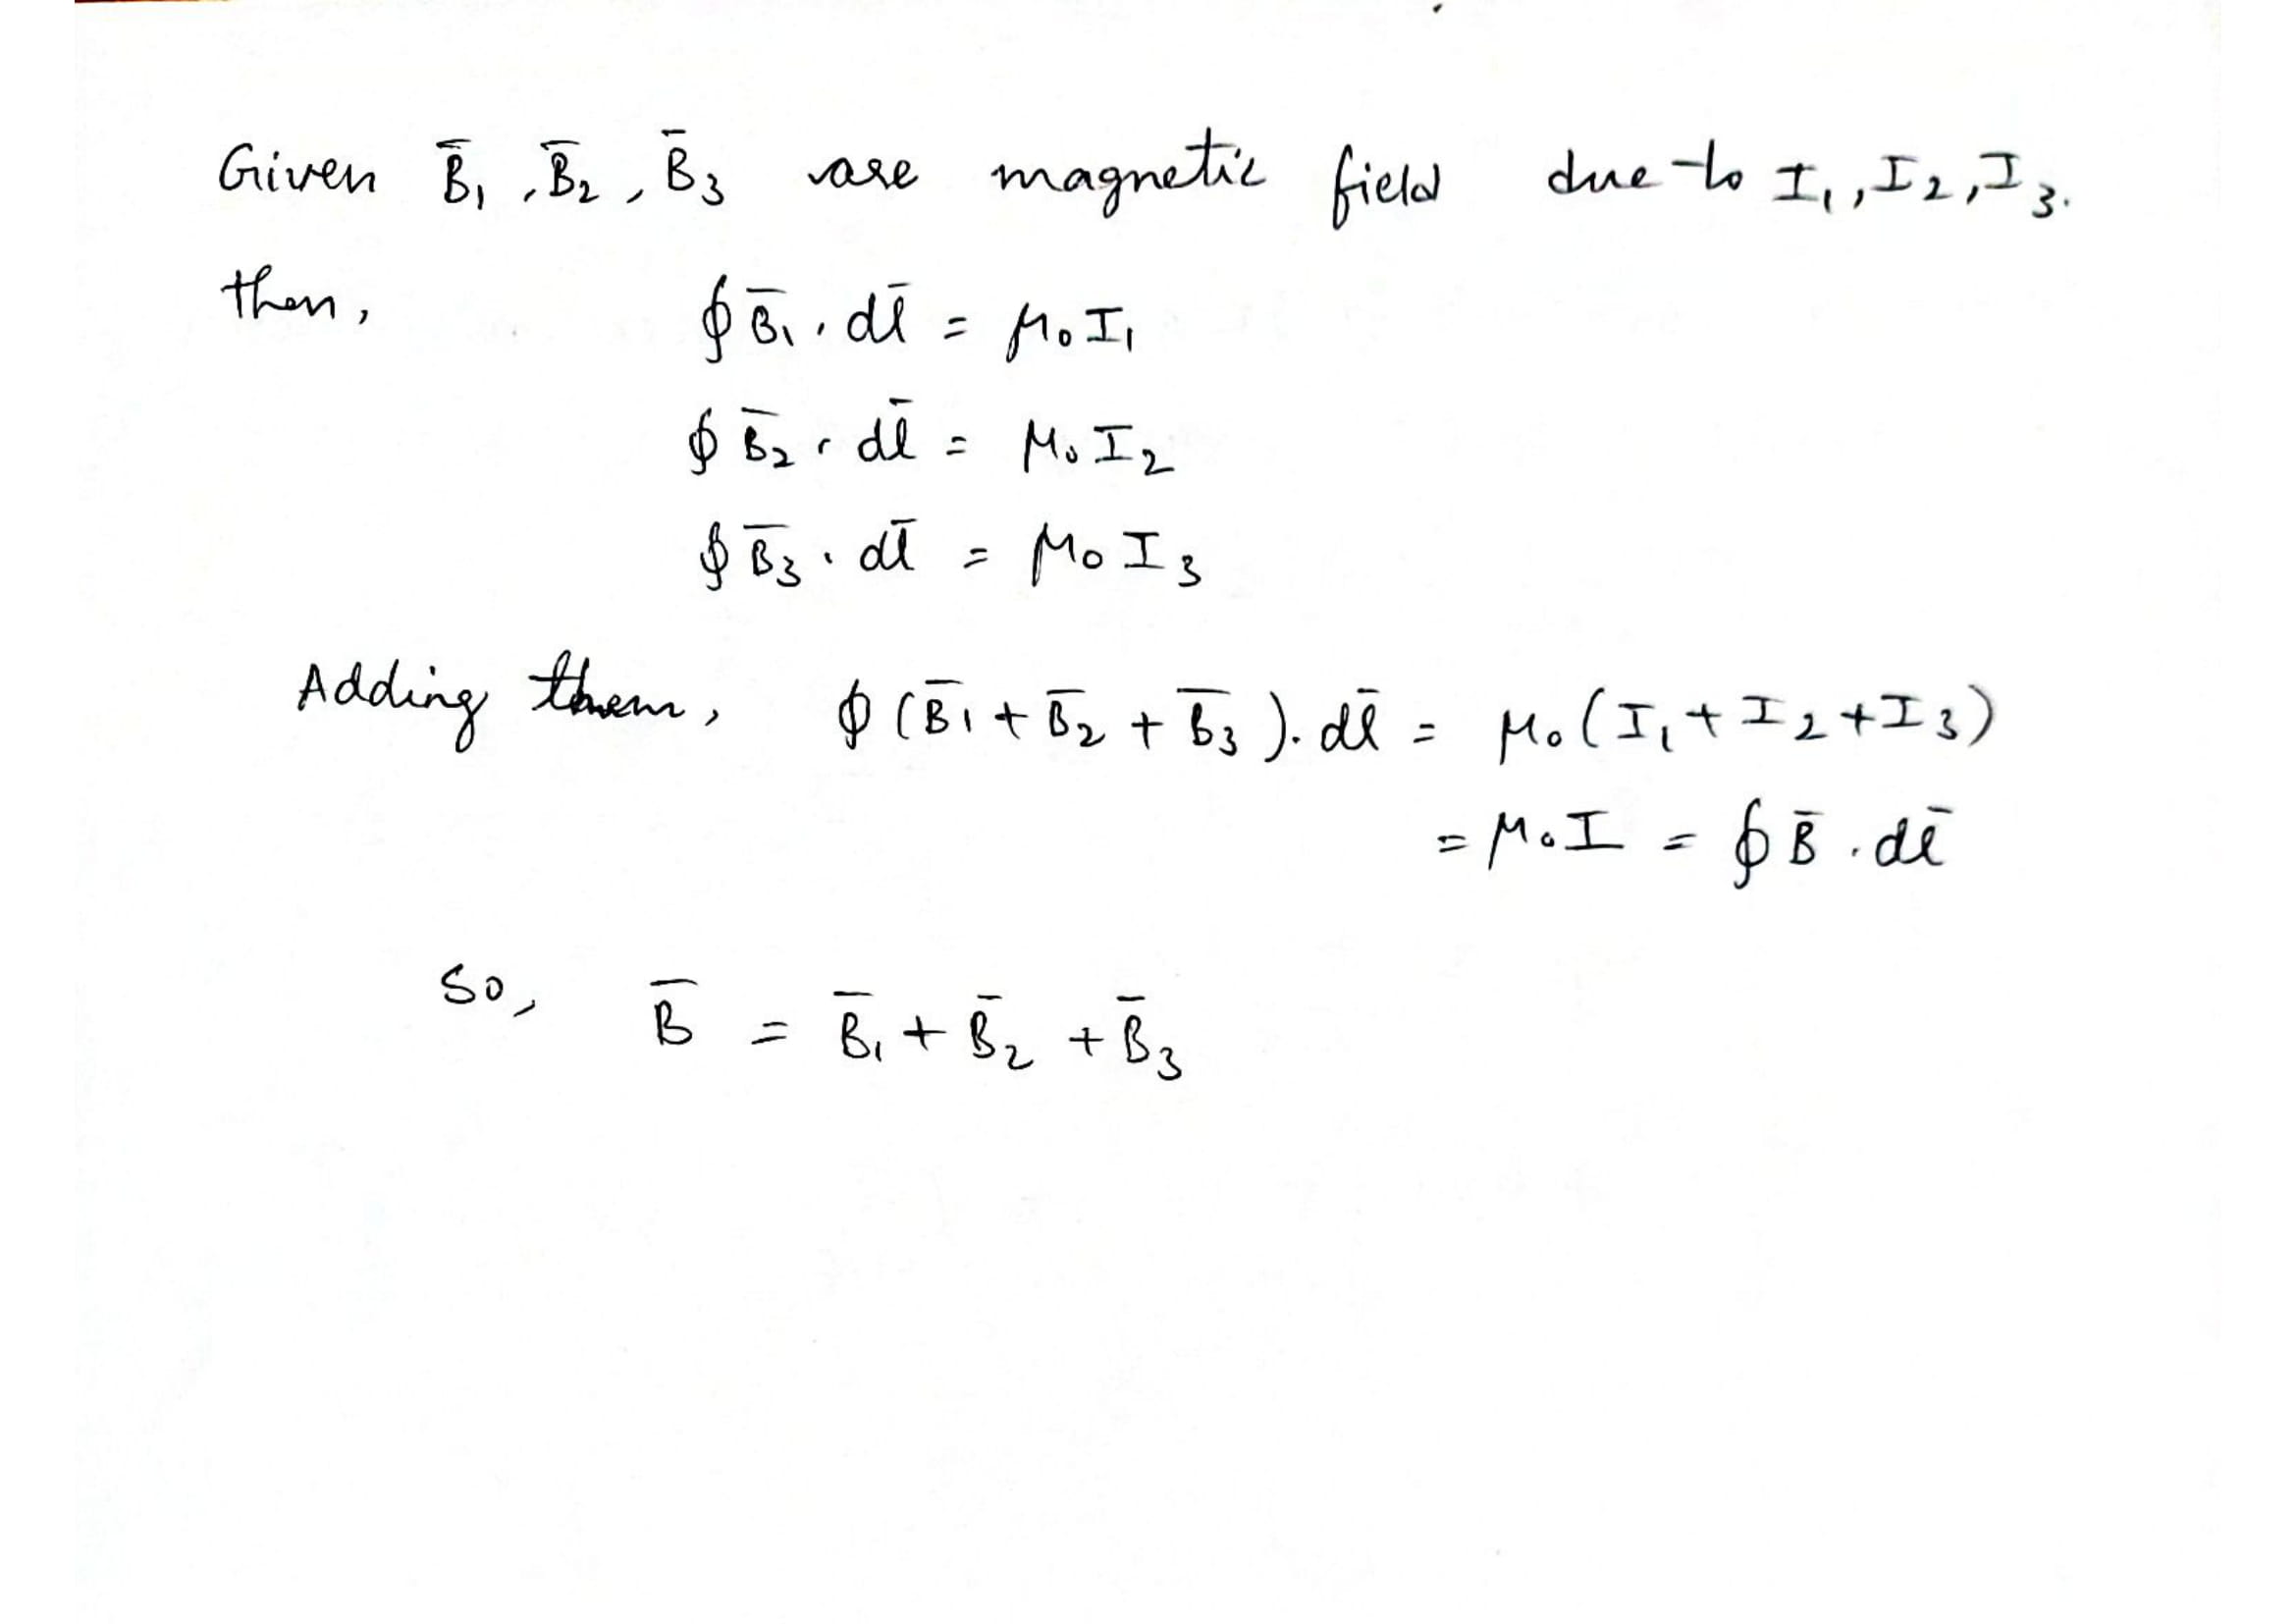 Given B̄₁, B̄₂, B̄₃ are magnetic field due to I₁, I₂, I₃.
then,
∮ B̄₁ · dl̄ = μ₀I₁
∮ B̄₂ · dl̄ = μ₀I₂
∮ B̄₃ · dl̄ = μ₀I₃
Adding them, ∮ (B̄₁ + B̄₂ + B̄₃) · dl̄ = μ₀(I₁ + I₂ + I₃)
= μ₀I = ∮ B̄ · dl̄
So, B̄ = B̄₁ + B̄₂ + B̄₃